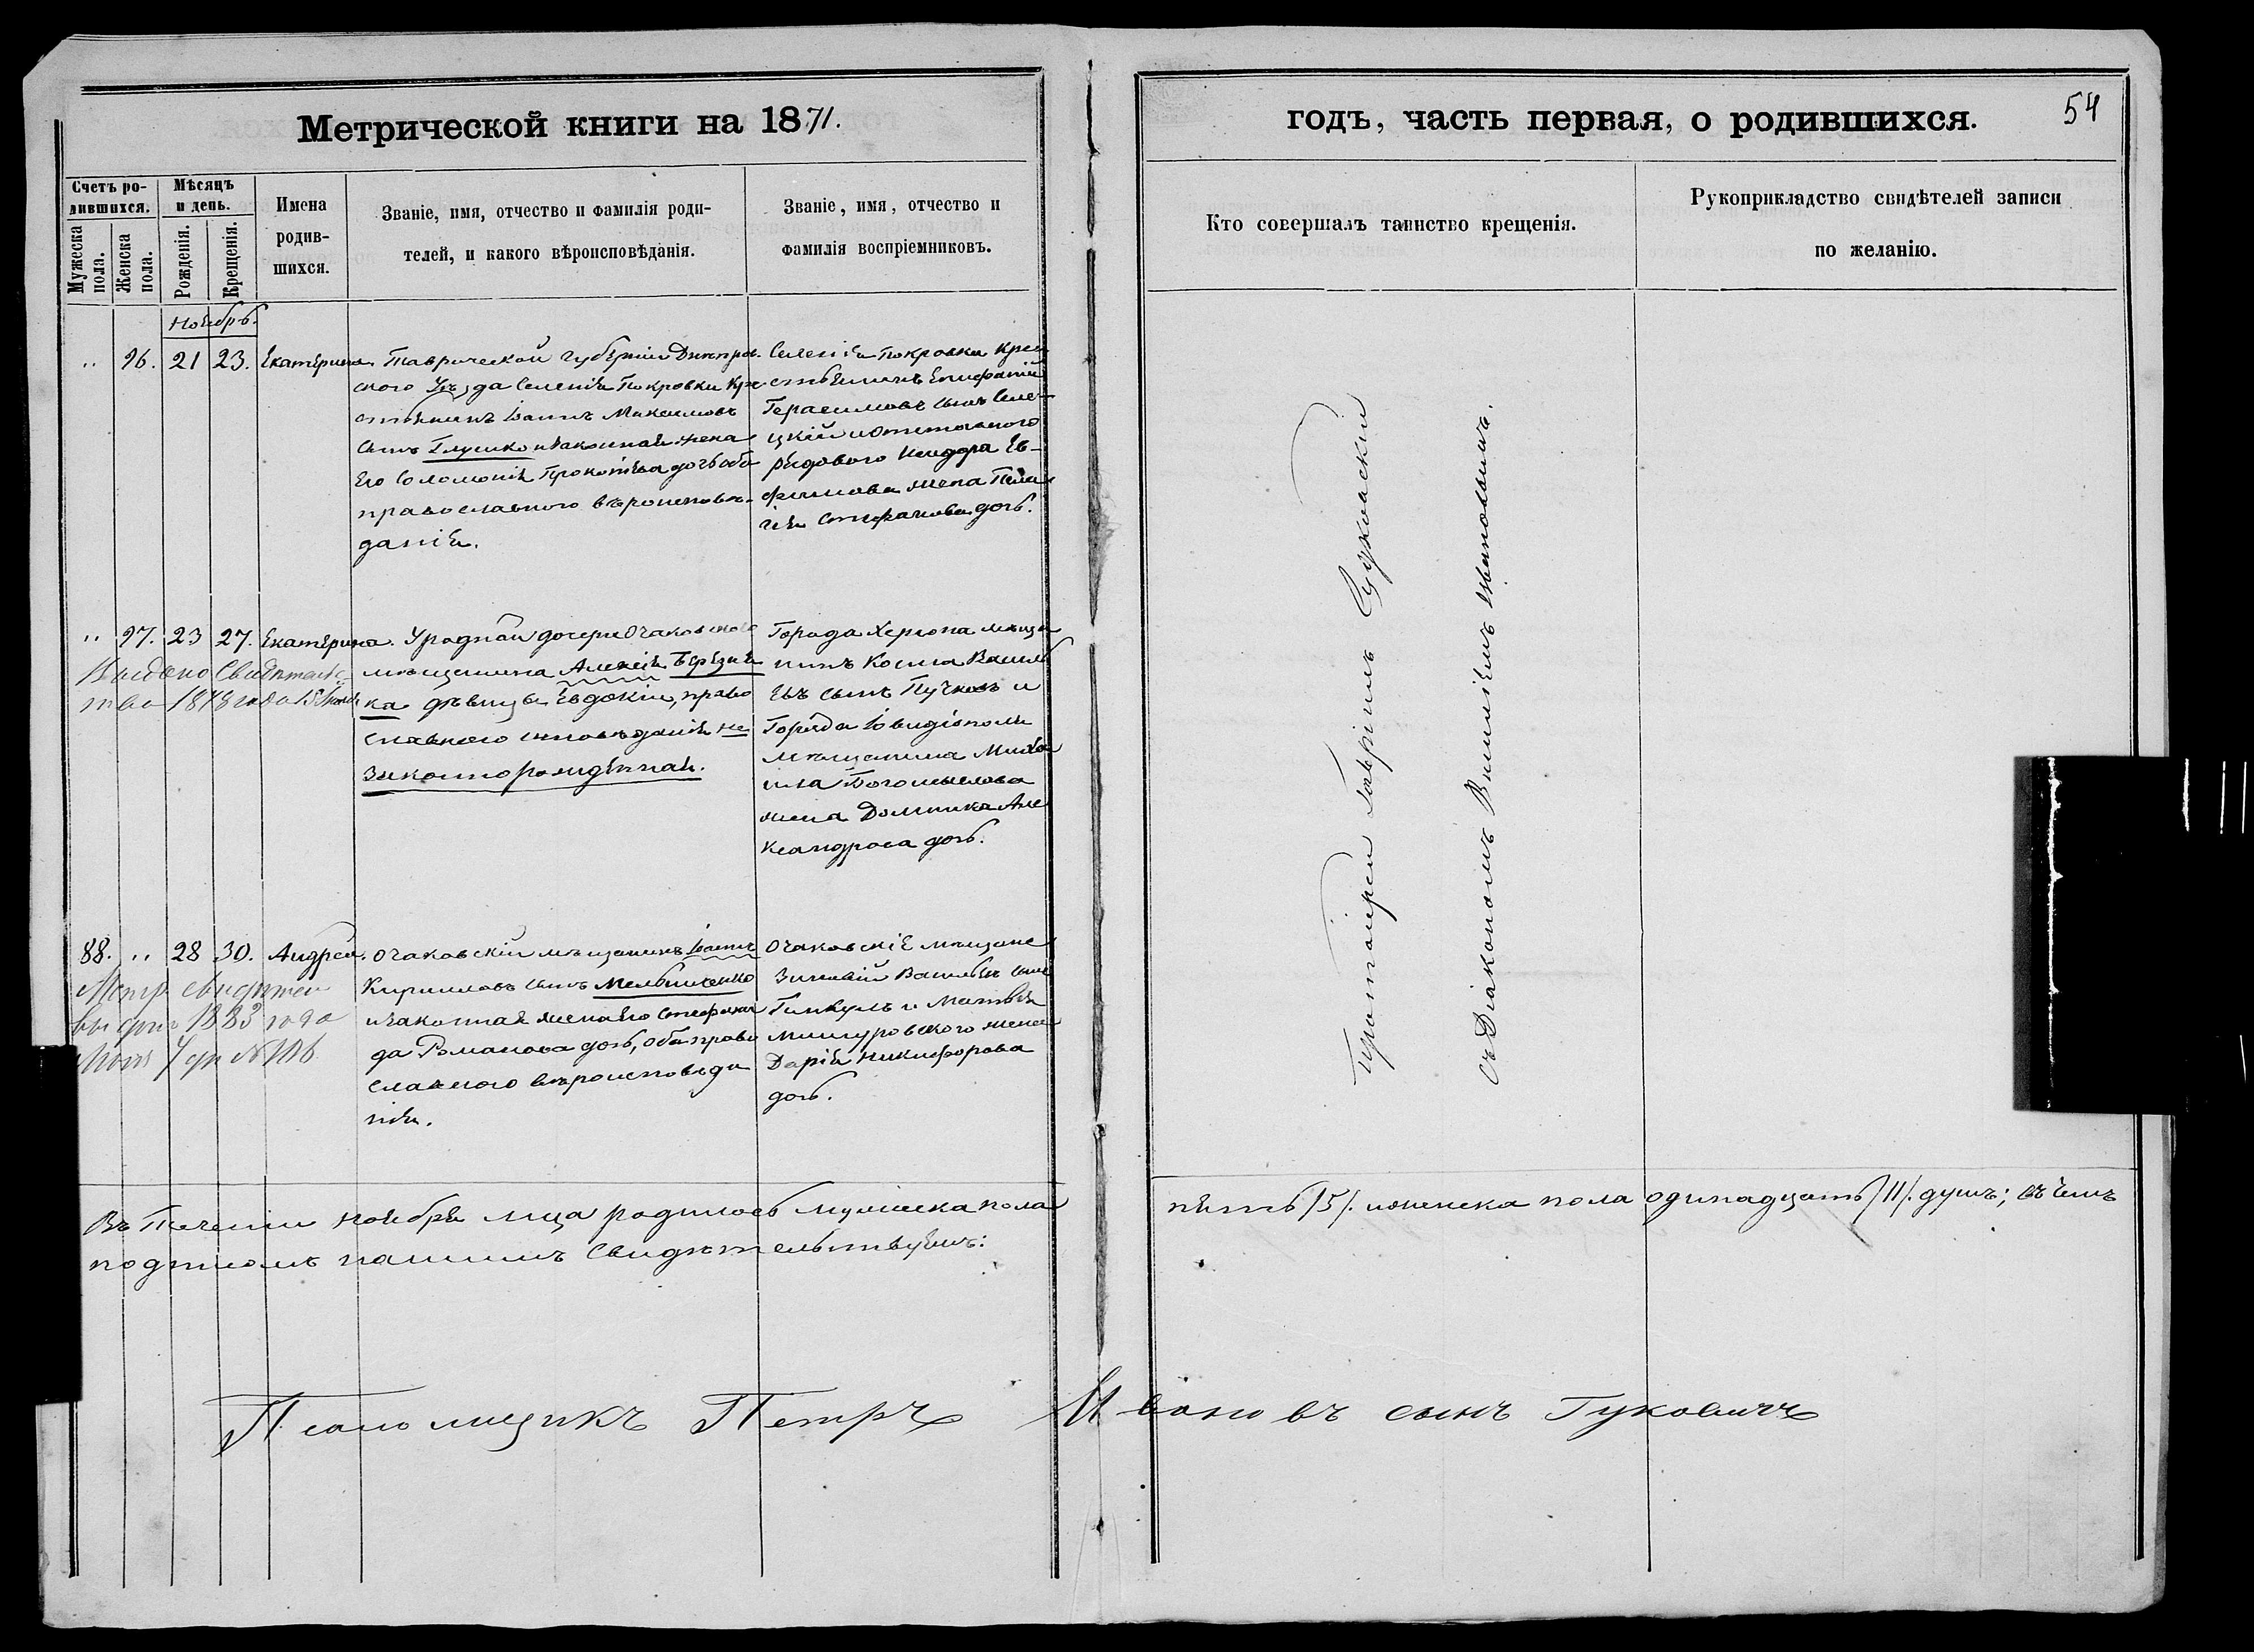 Метрической книги на 1871.
годъ, часть первая, о родившихся.
54
Счетъ ро-
дившихся.
Мужеска
пола.
Женска
пола.
Мѣсяцъ
и день.
Рожденія.
Крещенія.
Имена
родив-
шихся.
Званіе, имя, отчество и фамилія роди-
телей, и какого вѣроисповѣданія.
Званіе, имя, отчество и
фамилія воспріемниковъ.
Кто совершалъ таинство крещенія.
Рукоприкладство свидѣтелей записи
по желанію.
Ноябрь.
" 96. 21 23. Екатерина.
Таврической губерніи Днепров-
ского Уѣзда Селенія Покровки Кре-
стьянинъ Іоаннъ Максимовъ
сынъ Глушко и законная жена
Его Соломонія Прокопіева дочь оба
православного вѣроисповѣ-
данія.
Селенія Покровки Кре-
стьянинъ Епифаній
Герасимовъ сынъ Селе-
цкій и отставного
рядового Исидора Ев-
фимова жена Пела-
гія Стефанова дочь.
" 97. 23 27. Екатерина.
Выдано Свидѣтельс-
тво 1878 года 15
У родной дочери Очаковского
мѣщанина Алексія Березня
ка дѣвицы Евдокіи, право
славного исповѣданія не
законнорожденная.
Города Херсона мѣща
нинъ Косма Василь
евъ сынъ Пучковъ и
Города Овидіополя
мѣщанина Миха
ила Богомолова
жена Домника Але
ксандрова дочь.
88. " 28 30. Андрей.
Метр. свидѣтел
выдано 1883 года
Очаковскій мѣщанинъ Іоаннъ
Кирилловъ сынъ Мельниченко
и законная жена его Стефани
да Романова дочь, оба право
славного вѣроисповѣда
нія.
Очаковскіе мѣщане
Зиновій Васильевъ сынъ
Гинкулъ и Матвѣя
Мишуровского жена
Дарія Никифорова
дочь.
Протоіерей Гавріилъ Судковскій
съ Діакономъ Василіемъ Ивановымъ.
Въ теченіи ноября мца родилось мужеска пола
пять /5/. и женска пола одинадцать /11/. душъ; въ чемъ
подписомъ нашимъ свидѣтельствуемъ:
Псаломщикъ Петръ Ивановъ сынъ Гуковичъ